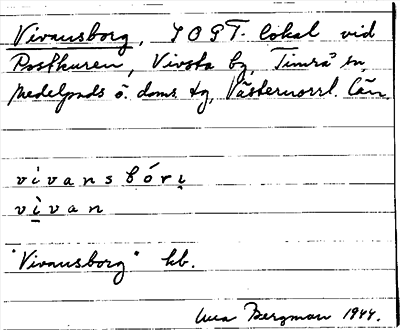 Vivansborg, IOGT. lokal vid
Postkuren, Vivsta by, Timrå sn,
Medelpads ö. doms. tg, Västernorrl. län.
vivansbóri
vìvan
"Vivansborg" kb.
Bergman 1944.